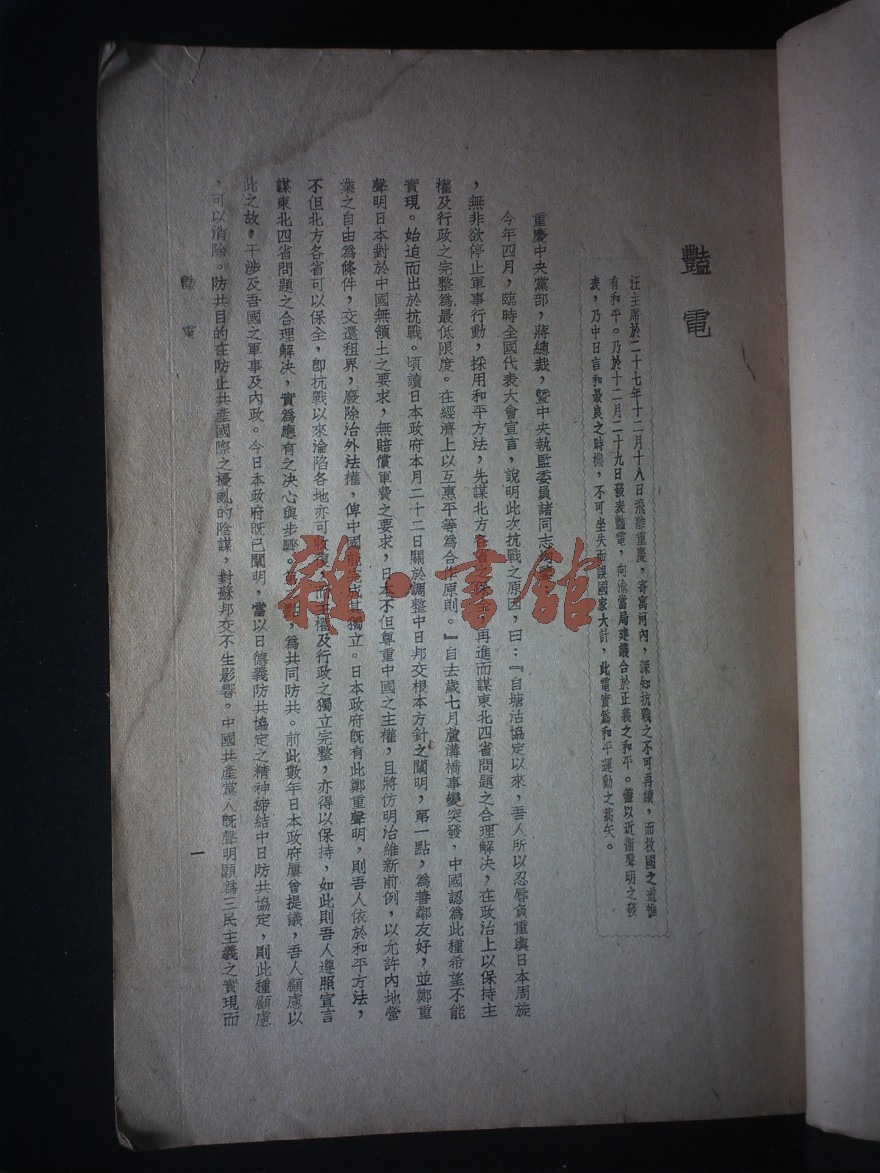 豔電
汪主席於二十七年十二月十八日飛離重慶，寄寓河內，深知抗戰之不可再續，而救國之道惟
有和平。乃於十二月二十九日發表豔電，向渝當局建議合於正義之和平。蓋以近衛聲明之發
表，乃中日言和最良之時機，不可坐失而誤國家大計，此電實為和平運動之嚆矢。
重慶中央黨部，蔣總裁，暨中央執監委員諸同志
今年四月，臨時全國代表大會宣言，說明此次抗戰之原因，曰：『自塘沽協定以來，吾人所以忍辱負重與日本周旋
，無非欲停止軍事行動，採用和平方法，先謀北方各省之保，再進而謀東北四省問題之合理解決，在政治上以保持主
權及行政之完整為最低限度。在經濟上以互惠平等為合作原則。』自去歲七月蘆溝橋事變突發，中國認為此種希望不能
實現。始迫而出於抗戰。頃讀日本政府本月二十二日關於調整中日邦交根本方針之闡明，第一點，為善鄰友好，並鄭重
聲明日本對於中國無領土之要求，無賠償軍費之要求，日本不但尊重中國之主權，且將仿明治維新前例，以允許內地營
業之自由為條件，交還租界，廢除治外法權，俾中國能完成其獨立。日本政府既有此鄭重聲明，則吾人依於和平方法，
不但北方各省可以保全，卽抗戰以來淪陷各地亦可收復，而主權及行政之獨立完整，亦得以保持，如此則吾人遵照宣言
謀東北四省問題之合理解決，實為應有之決心與步驟。點，為共同防共。前此數年日本政府屢曾提議，吾人顧慮以
此之故，干涉及吾國之軍事及內政。今日本政府既已闡明，當以日德義防共協定之精神締結中日防共協定，則此種顧慮
，可以消除。防共目的在防止共產國際之擾亂的陰謀，對蘇邦交不生影響。中國共產黨人既聲明願為三民主義之實現而
豔電
一
雜·書館